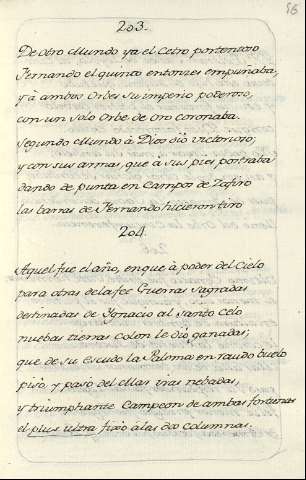 56
203.
De otro Mundo ya el Cetro portentoso
Fernando el quinto entonzes empuñaba,
y à ambos Orbes su imperio poderoso,
con un solo Orbe de oro coronaba.
Segundo Mundo à Dios diò victorioso;
y con sus armas, que à sus pies postraba
dando de punta en Campos de Zafiro
las barras de Fernando hicieron tiro
204.
Aquel fue el año, en que à poder del Cielo
para otras de la fee Guerras sagradas
destinadas de Ignacio al santo celo
nuebas tierras Colon le diò ganadas;
que de su escudo la Paloma en raudo buelo
pisò, y pasò del Mar vias nebadas,
y triumphante Campeon de ambas fortunas
el plus ultra fixò à las dos columnas.